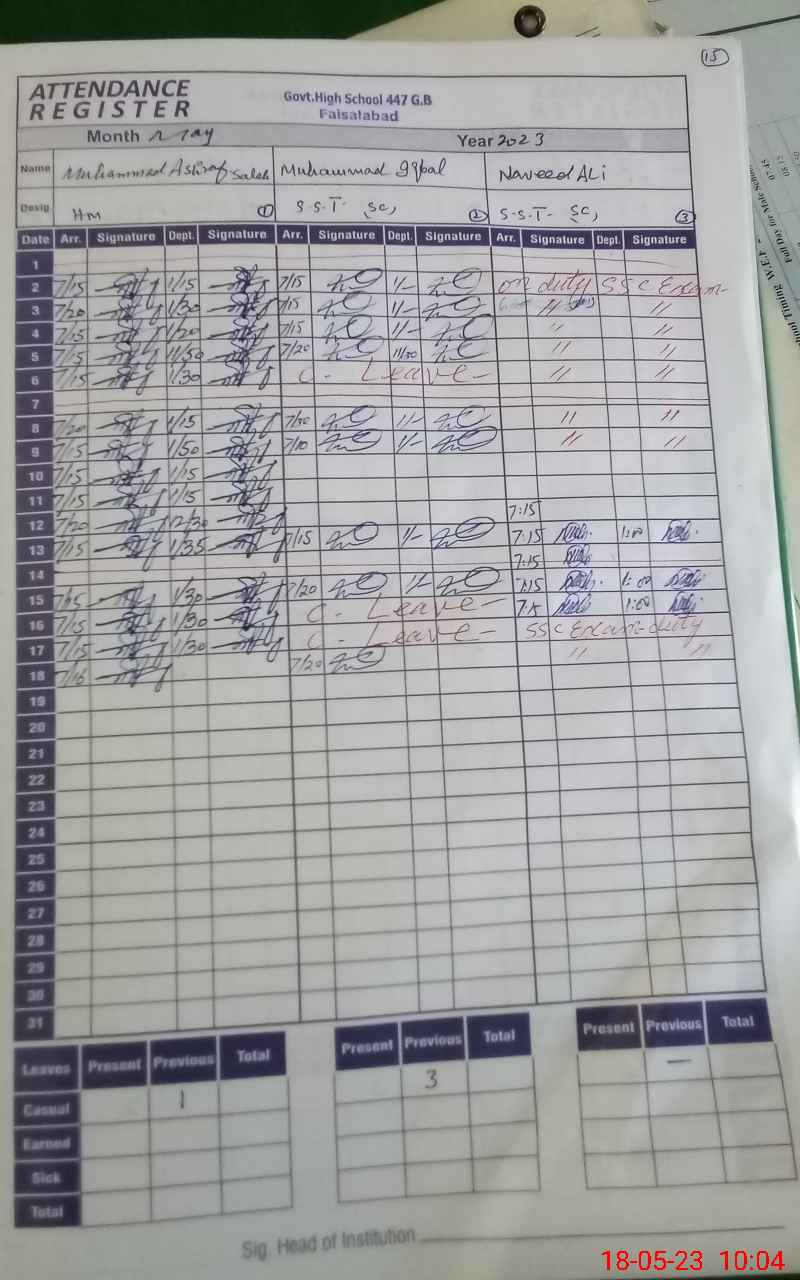 15
ATTENDANCE REGISTER
Govt.High School 447 G.B
Faisalabad
Month May Year 2023
Name Muhammad Ashraf Muhammad Iqbal Naveed ALi
Desig. HM 1 S.S.T. Sc, 2 S.S.T. Sc, 3
Date Arr. Signature Dept. Signature Arr. Signature Dept. Signature Arr. Signature Dept. Signature
1
2 7/15 1/15 7/15 1/- on duty SSC Exam
3 7/20 1/30 7/15 1/- " "
4 7/15 1/20 7/15 1/- " "
5 7/15 11/50 7/20 11/50 " "
6 7/15 1/30 C. Leave " "
7
8 7/20 1/15 7/20 1/- " "
9 7/15 1/50 7/10 1/- " "
10 7/15 1/15
11 7/15 1/15
12 7/20 12/30 7:15
13 7/15 1/35 7/15 1/- 7:15 1:00
7:15
14
15 7/15 1/30 7/20 1/- 7:15 1:00
16 7/15 1/30 C. Leave 7:15 1:00
17 7/15 1/30 C. Leave SSC Exam duty
18 7/16 7/20 " "
19
20
21
22
23
24
25
26
27
28
29
30
31
Leaves Present Previous Total Present Previous Total Present Previous Total
Casual 1 3 —
Earned
Sick
Total
Sig. Head of Institution
18-05-23 10:04